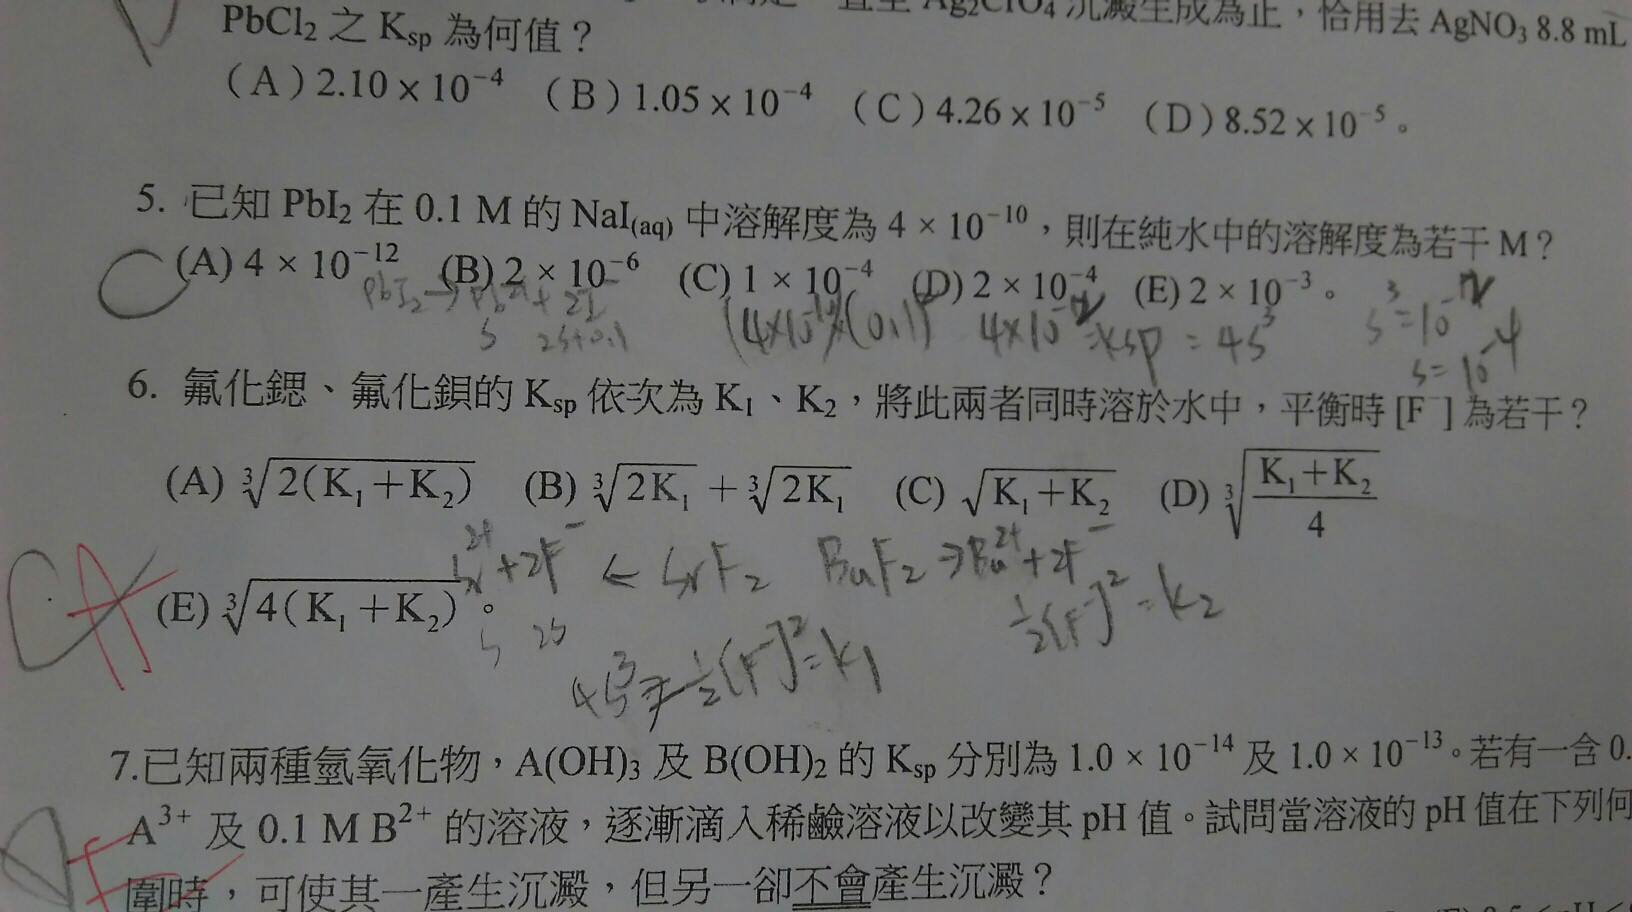 沉澱生成為止，恰用去 AgNO₃ 8.8 mL
PbCl₂ 之 Ksp 為何值？
（A）2.10 × 10⁻⁴ （B）1.05 × 10⁻⁴ （C）4.26 × 10⁻⁵ （D）8.52 × 10⁻⁵。
5. 已知 PbI₂ 在 0.1 M 的 NaI(aq) 中溶解度為 4 × 10⁻¹⁰，則在純水中的溶解度為若干 M？
C (A) 4 × 10⁻¹² (B) 2 × 10⁻⁶ (C) 1 × 10⁻⁴ (D) 2 × 10⁻⁴ (E) 2 × 10⁻³。
PbI₂ → Pb²⁺ + 2I⁻ 4×10⁻¹² = Ksp = 4s³ s³ = 10⁻¹²
s 2s+0.1 s = 10⁻⁴
6. 氟化鍶、氟化鋇的 Ksp 依次為 K₁、K₂，將此兩者同時溶於水中，平衡時 [F⁻] 為若干？
(A) ∛2(K₁+K₂) (B) ∛2K₁ + ∛2K₁ (C) √K₁+K₂ (D) ∛(K₁+K₂)/4
Sr²⁺+2F⁻ ← SrF₂ BaF₂ → Ba²⁺+2F⁻
C A (E) ∛4(K₁+K₂)。 ½[F⁻]² = K₂
s 2s
4s³ ½[F⁻]² = K₁
7.已知兩種氫氧化物，A(OH)₃ 及 B(OH)₂ 的 Ksp 分別為 1.0 × 10⁻¹⁴ 及 1.0 × 10⁻¹³。若有一含 0.
A³⁺ 及 0.1 M B²⁺ 的溶液，逐漸滴入稀鹼溶液以改變其 pH 值。試問當溶液的 pH 值在下列何
圍時，可使其一產生沉澱，但另一卻不會產生沉澱？